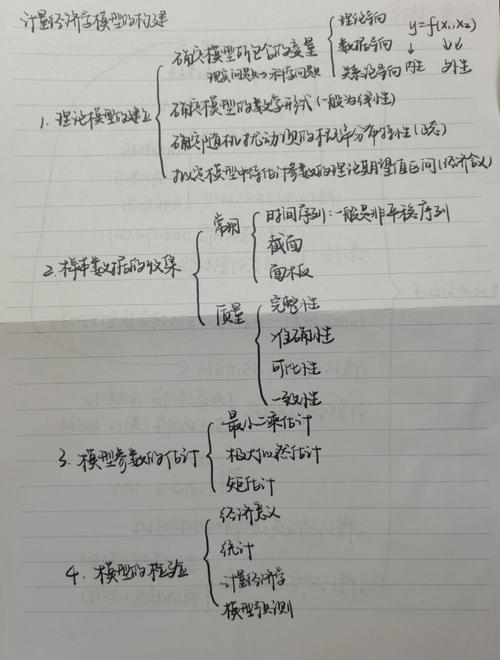 计量经济学模型的构建
理论导向 y=f(x₁,x₂)
确定模型所包含的变量 数据导向 ↓ ↓↓
现实问题→科学问题 关系论导向 内生 外生
1. 理论模型的建立
确定模型的数学形式(一般为线性)
确定随机扰动项的概率分布特性(正态)
拟定模型中待估计参数的理论期望值区间(经济含义)
常用
时间序列:一般是非平稳序列
截面
面板
2. 样本数据的收集
质量
完整性
准确性
可比性
一致性
3. 模型参数的估计
最小二乘估计
极大似然估计
矩估计
4. 模型的检验
经济意义
统计
计量经济学
模型预测